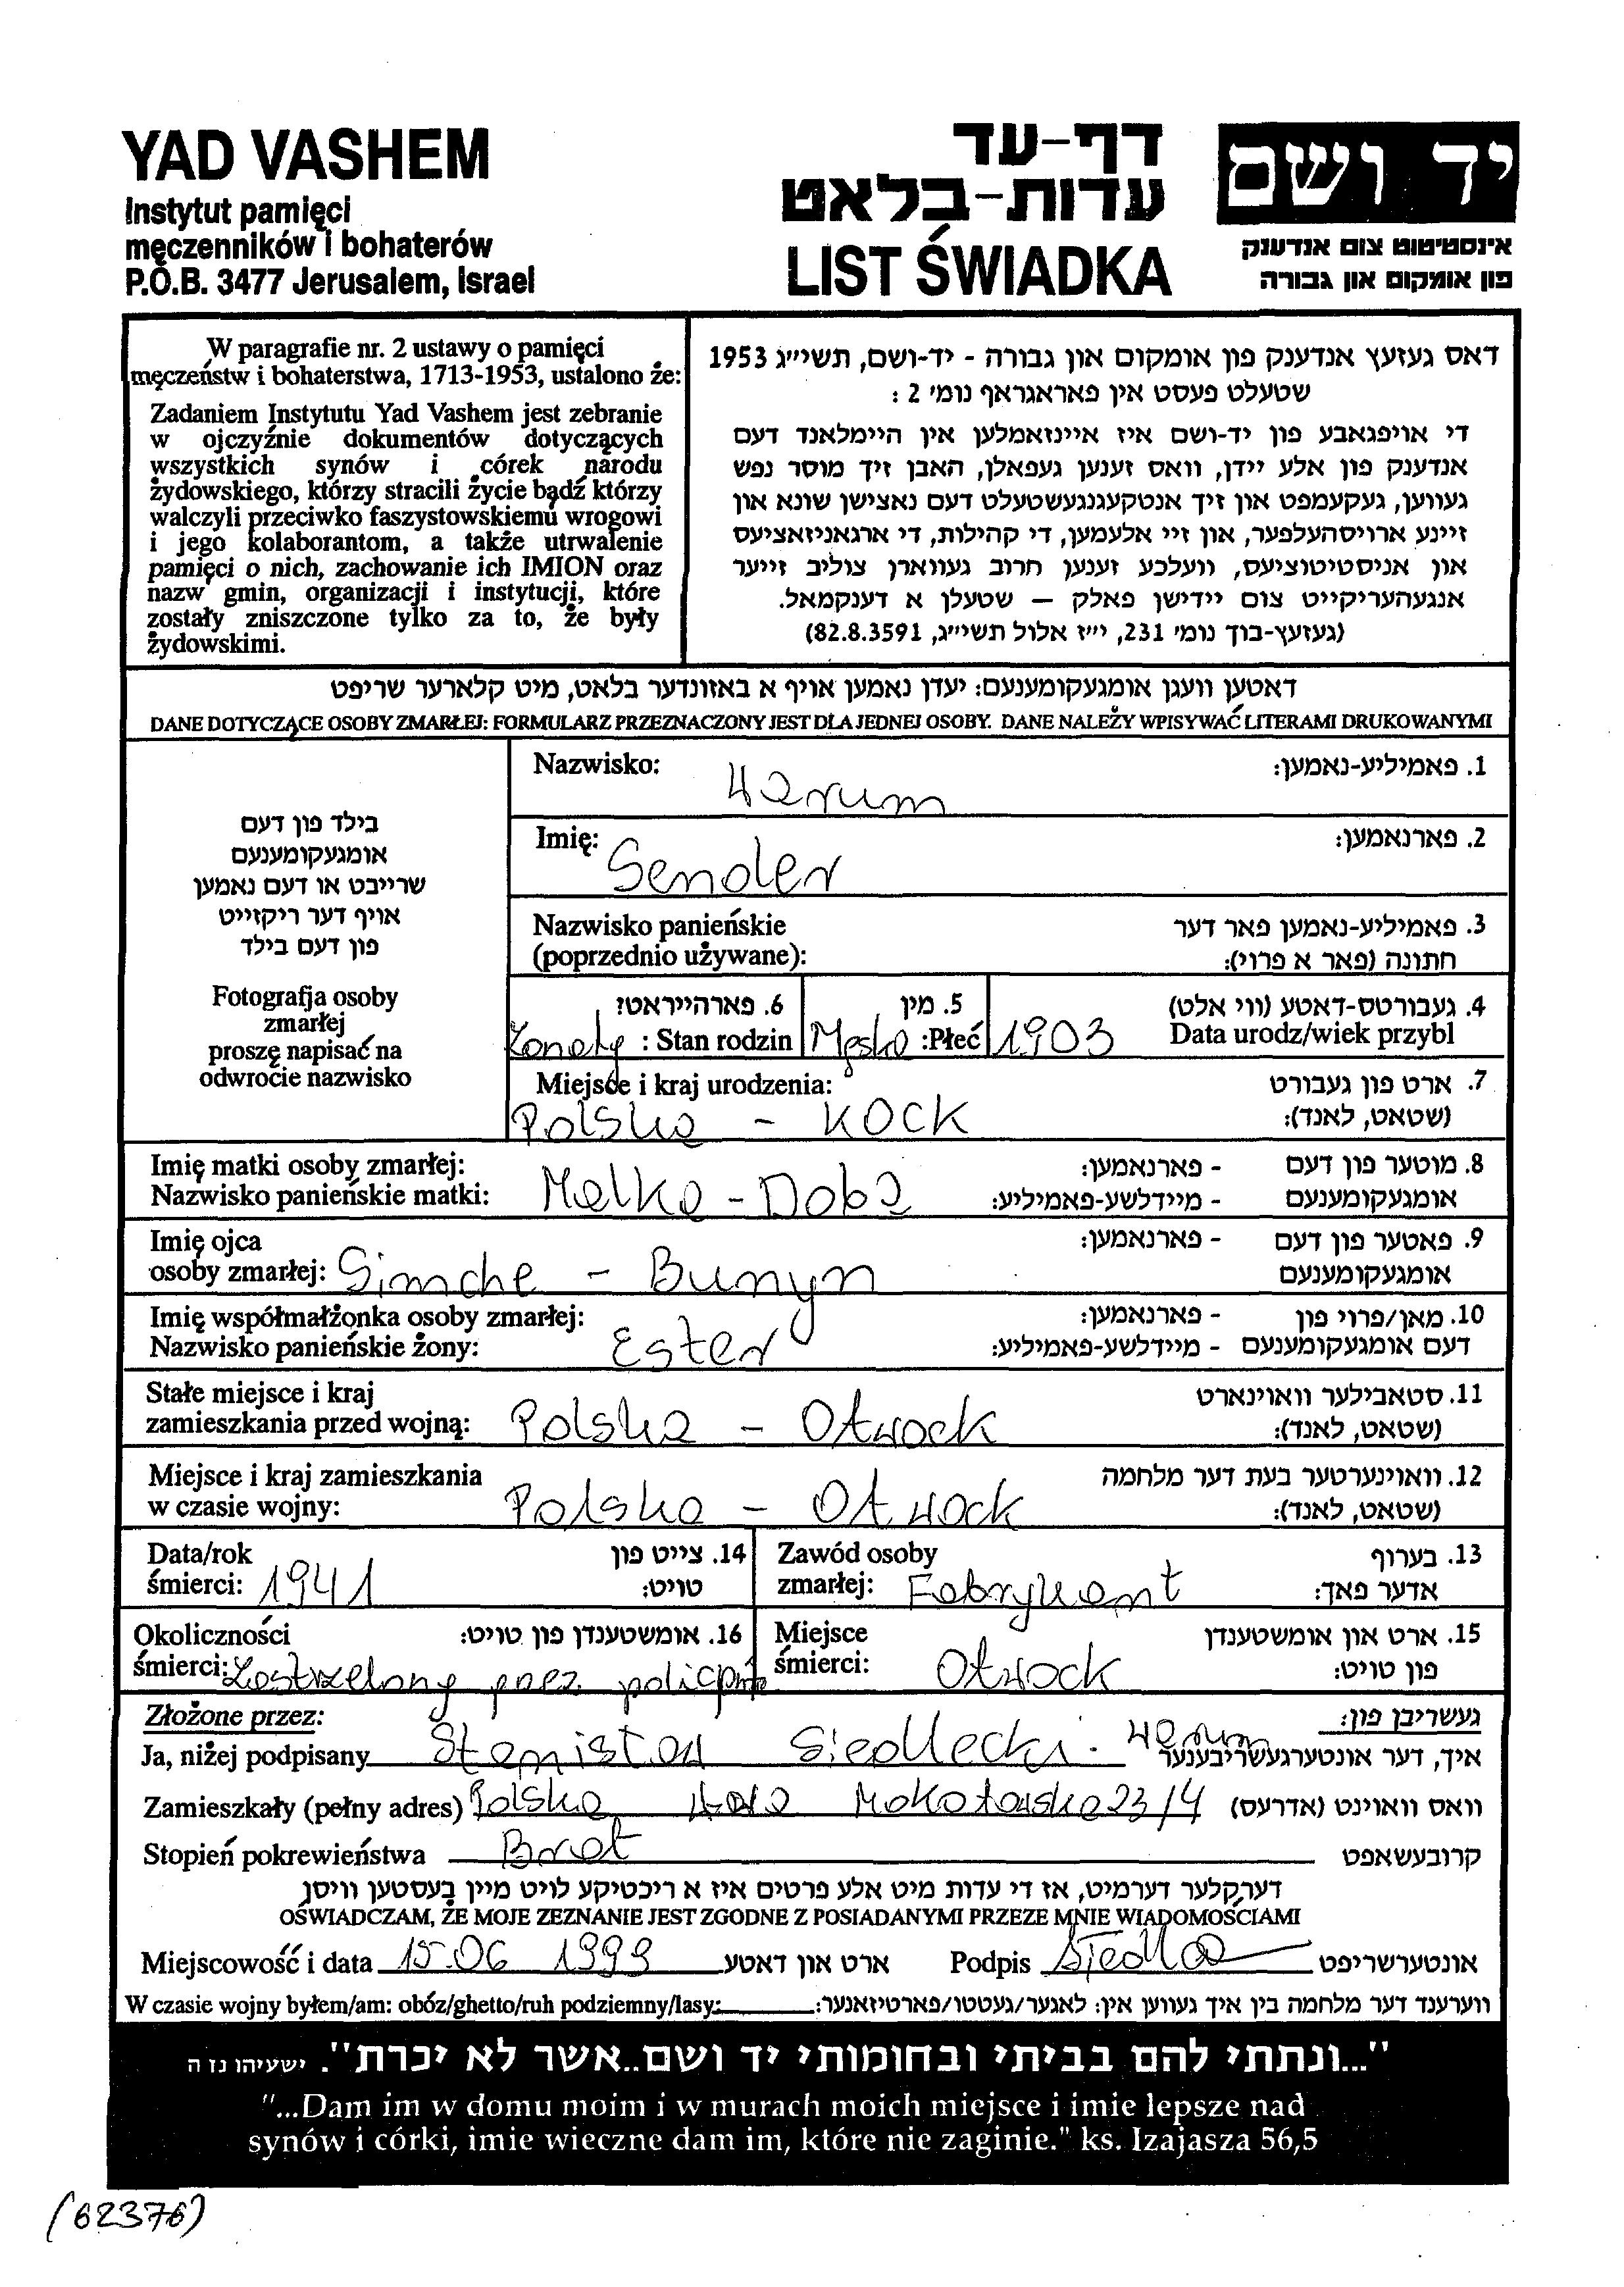 YAD VASHEM
Instytut pamięci
męczenników i bohaterów
P.O.B. 3477 Jerusalem, Israel
דף-עד
עדות-בלאט
LIST ŚWIADKA
יד ושם
אינסטיטוט צום אנדענק
פון אומקום און גבורה
W paragrafie nr. 2 ustawy o pamięci
męczeństw i bohaterstwa, 1713-1953, ustalono że:
Zadaniem Instytutu Yad Vashem jest zebranie
w ojczyźnie dokumentów dotyczących
wszystkich synów i córek narodu
żydowskiego, którzy stracili życie bądź którzy
walczyli przeciwko faszystowskiemu wrogowi
i jego kolaborantom, a także utrwalenie
pamięci o nich, zachowanie ich IMION oraz
nazw gmin, organizacji i instytucji, które
zostały zniszczone tylko za to, że były
żydowskimi.
דאס געזעץ אנדענק פון אומקום און גבורה - יד-ושם, תשי״ג 1953
שטעלט פעסט אין פאראגראף נומ׳ 2 :
די אויפגאבע פון יד-ושם איז איינזאמלען אין היימלאנד דעם
אנדענק פון אלע יידן, וואס זענען געפאלן, האבן זיך מוסר נפש
געווען, געקעמפט און זיך אנטקעגנגעשטעלט דעם נאצישן שונא און
זיינע ארויסהעלפער, און זיי אלעמען, די קהילות, די ארגאניזאציעס
און אניסטיטוציעס, וועלכע זענען חרוב געווארן צוליב זייער
אנגעהעריקייט צום יידישן פאלק – שטעלן א דענקמאל.
(געזעץ-בוך נומ׳ 231, י״ז אלול תשי״ג, 82.8.3591)
דאטען וועגן אומגעקומענעם: יעדן נאמען אויף א באזונדער בלאט, מיט קלארער שריפט
DANE DOTYCZĄCE OSOBY ZMARŁEJ: FORMULARZ PRZEZNACZONY JEST DLA JEDNEJ OSOBY. DANE NALEŻY WPISYWAĆ LITERAMI DRUKOWANYMI
בילד פון דעם
אומגעקומענעם
שרייבט או דעם נאמען
אויף דער ריקזייט
פון דעם בילד
Fotografja osoby
zmarłej
proszę napisać na
odwrocie nazwisko
Nazwisko: Warum 1. פאמיליע-נאמען:
Imię: Sender 2. פארנאמען:
Nazwisko panieńskie 3. פאמיליע-נאמען פאר דער
(poprzednio używane): חתונה (פאר א פרוי):
6. פארהייראט? 5. מין 4. געבורטס-דאטע (ווי אלט)
Żonaty : Stan rodzin Męska :Płeć 1903 Data urodz/wiek przybl
Miejsce i kraj urodzenia: 7. ארט פון געבורט
Polska - KOCK (שטאט, לאנד):
Imię matki osoby zmarłej: - פארנאמען: 8. מוטער פון דעם
Nazwisko panieńskie matki: Malka - Doba - מיידלשע-פאמיליע: אומגעקומענעם
Imię ojca - פארנאמען: 9. פאטער פון דעם
osoby zmarłej: Simche - Bunyn אומגעקומענעם
Imię współmałżonka osoby zmarłej: - פארנאמען: 10. מאן/פרוי פון
Nazwisko panieńskie żony: Ester - מיידלשע-פאמיליע: דעם אומגעקומענעם
Stałe miejsce i kraj 11. סטאבילער וואוינארט
zamieszkania przed wojną: Polska - Otwock (שטאט, לאנד):
Miejsce i kraj zamieszkania 12. וואוינערטער בעת דער מלחמה
w czasie wojny: Polska - Otwock (שטאט, לאנד):
Data/rok 14. צייט פון Zawód osoby 13. בערוף
śmierci: 1941 טויט: zmarłej: Fabrykant אדער פאך:
Okoliczności 16. אומשטענדן פון טויט: Miejsce 15. ארט און אומשטענדן
śmierci: Zastrzelony przez śmierci: Otwock פון טויט:
Złożone przez: געשריבן פון:
Ja, niżej podpisany Stanisław Siedlecki - Warum איך, דער אונטערגעשריבענער
Zamieszkały (pełny adres) Polska Mokotowska 23/4 וואס וואוינט (אדרעס)
Stopień pokrewieństwa Brat קרובעשאפט
דערקלער דערמיט, אז די עדות מיט אלע פרטים איז א ריכטיקע לויט מיין בעסטען וויסן
OŚWIADCZAM, ŻE MOJE ZEZNANIE JEST ZGODNE Z POSIADANYMI PRZEZE MNIE WIADOMOŚCIAMI
Miejscowość i data 15.06 1999 ארט און דאטע Podpis אונטערשריפט
W czasie wojny byłem/am: obóz/ghetto/ruh podziemny/lasy: ווערענד דער מלחמה בין איך געווען אין: לאגער/געטטו/פארטיזאנער:
"...ונתתי להם בביתי ובחומותי יד ושם..אשר לא יכרת". ישעיהו נז ה
"...Dam im w domu moim i w murach moich miejsce i imie lepsze nad
synów i córki, imie wieczne dam im, które nie zaginie." ks. Izajasza 56,5
(62376)